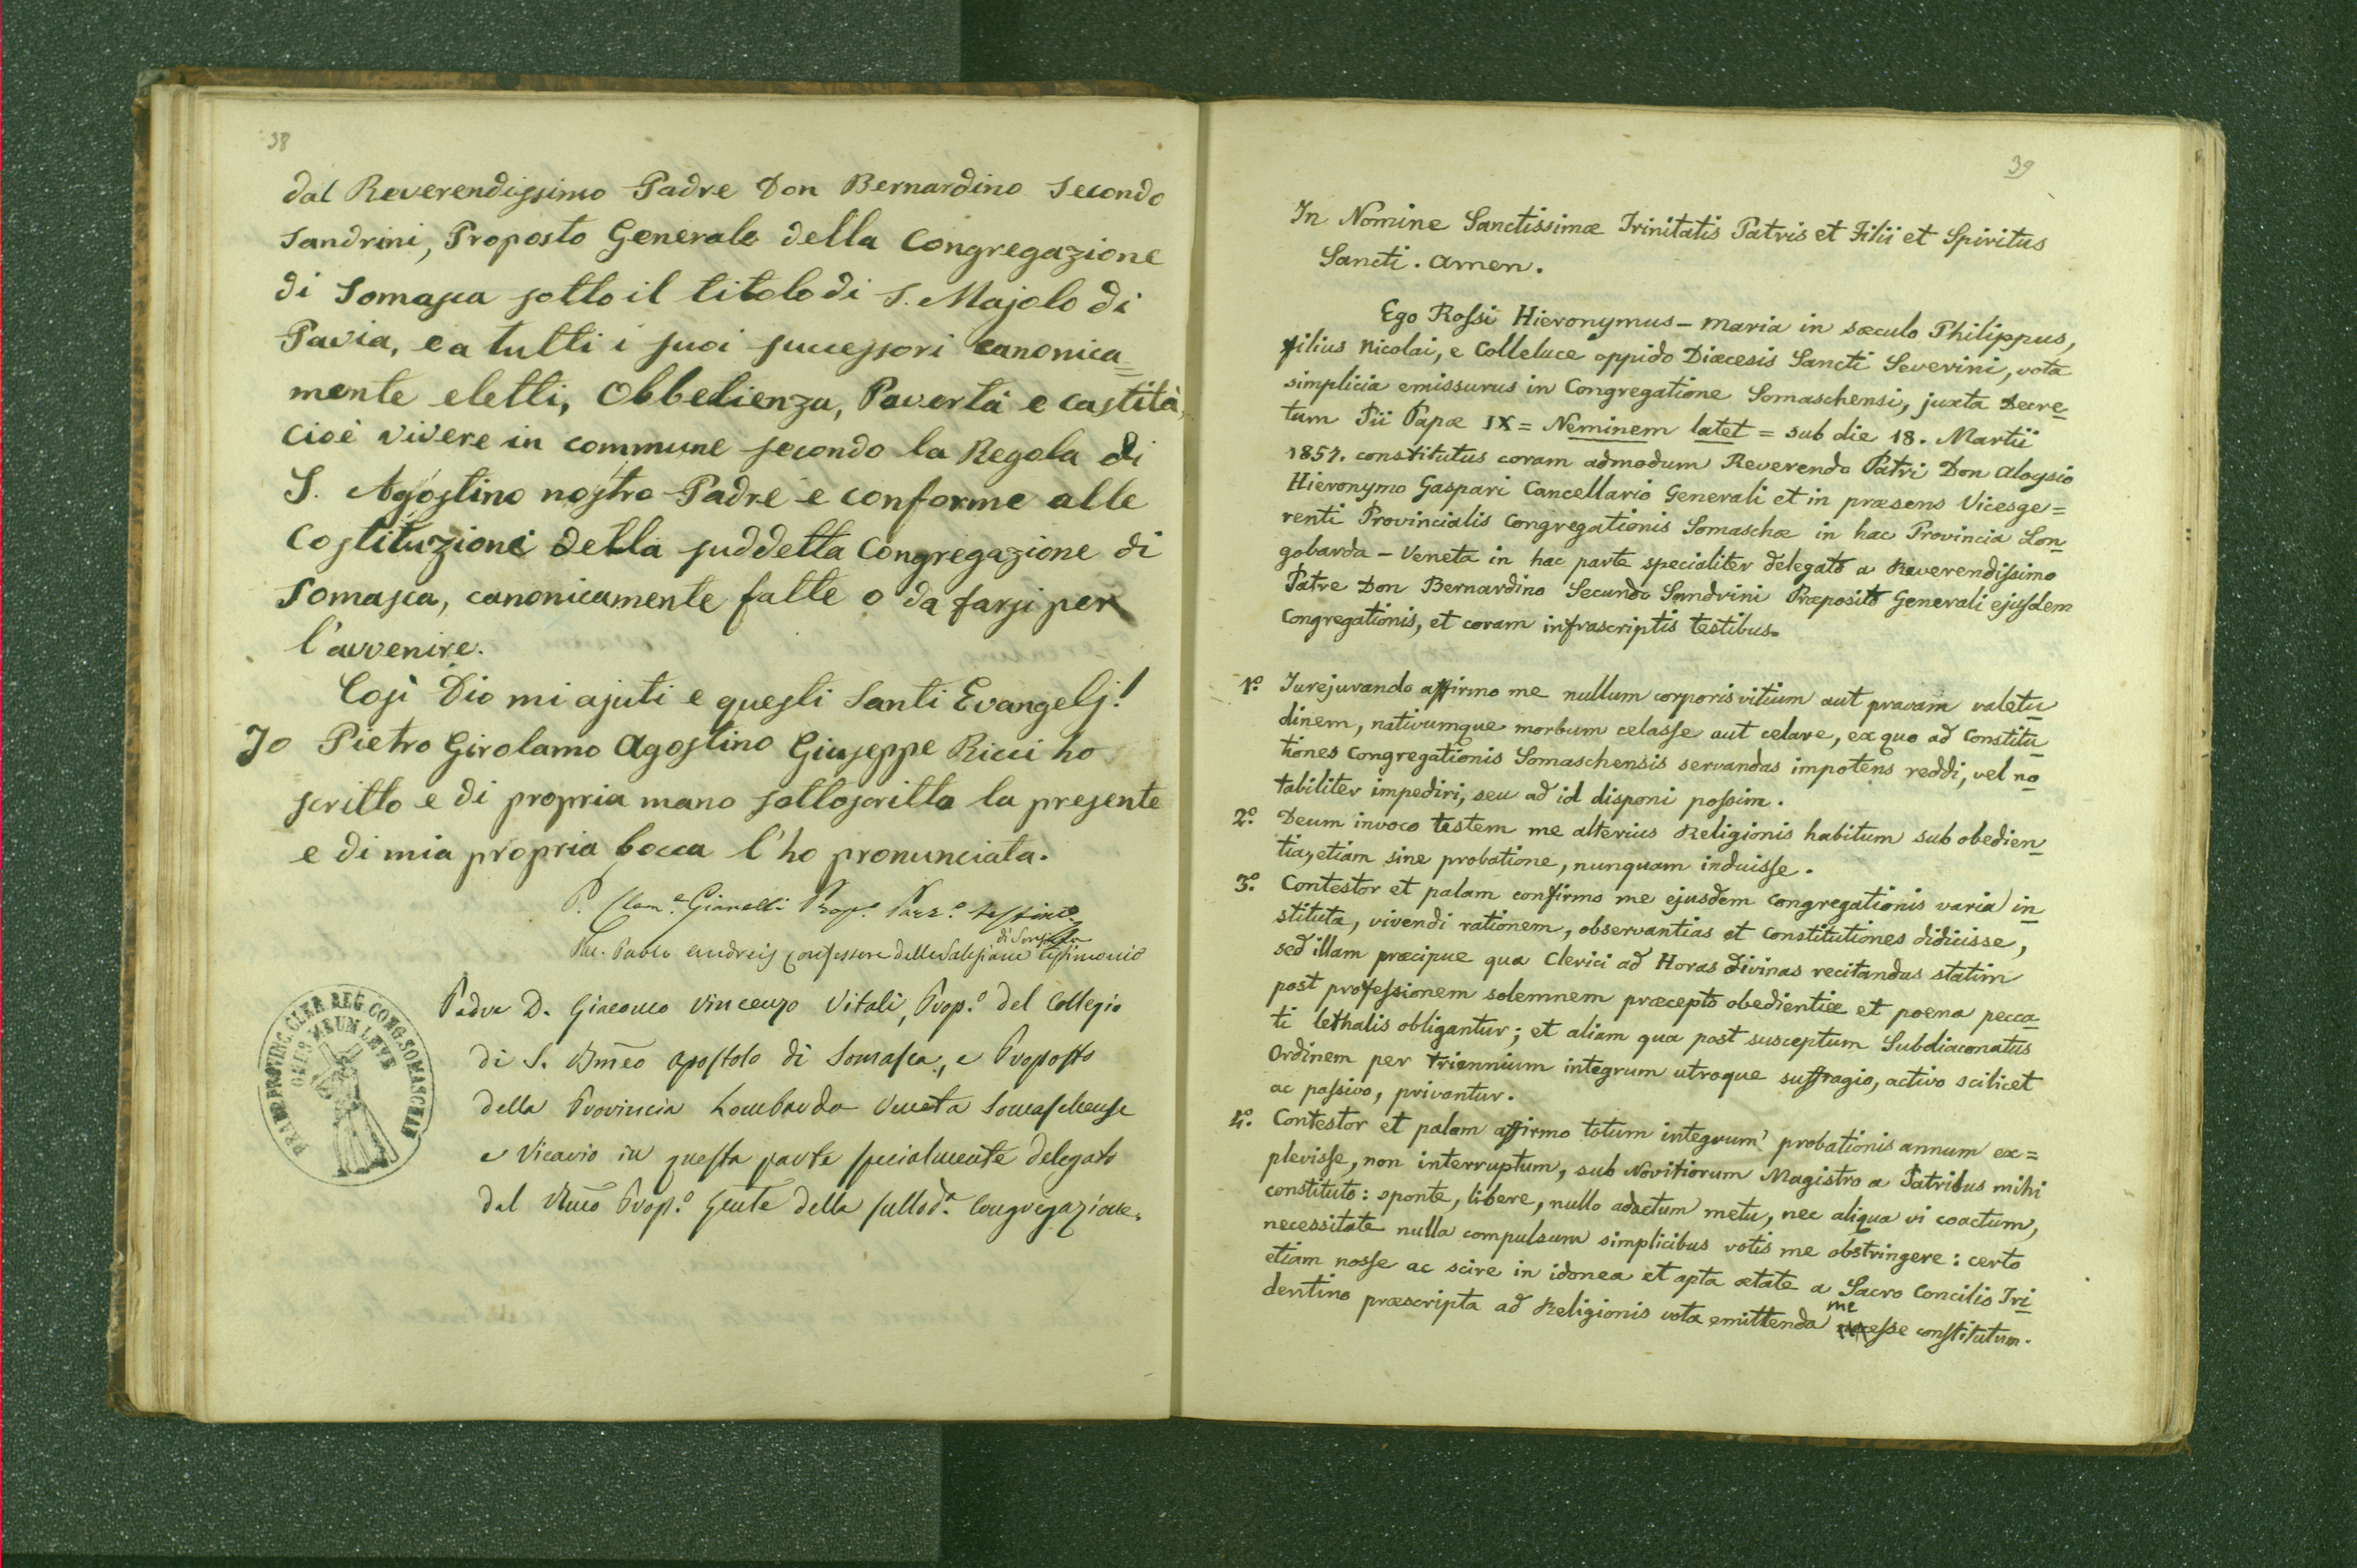 38
dal Reverendissimo Padre Don Bernardino Secondo
Sandrini, Proposto Generale della Congregazione
di Somasca sotto il titolo di S. Majolo di
Pavia, e a tutti i suoi successori canonica=
mente eletti, Obbedienza, Povertà e castità,
cioè vivere in commune secondo la Regola di
S. Agostino nostro Padre e conforme alle
Costituzioni della suddetta Congregazione di
Somasca, canonicamente fatte o da farsi per
l'avvenire.
Così Dio mi ajuti e questi Santi Evangelj!
Io Pietro Girolamo Agostino Giuseppe Ricci ho
scritto e di propria mano sottoscritta la presente
e di mia propria bocca l'ho pronunciata.
P. Gianelli Prop.
Paolo Andreis confessore delle Salesiane testimonio
Padre D. Giacomo Vincenzo Vitali, Prop.º del Collegio
di S. Bmeo Apostolo di Somasca, e Proposto
della Provincia Lombardo Veneta Somaschense
e Vicario in questa parte specialmente delegato
dal Rmo Prop.º Gnle della sullod.a Congregazione.
PRAEP. PROVINC. CLER. REG. CONG. SOMASCHAE
ONUS MEUM LEVE
39
In Nomine Sanctissimæ Trinitatis Patris et Filii et Spiritus
Sancti. Amen.
Ego Rossi Hieronymus - Maria in sæculo Philippus,
filius Nicolai, e Colleluce oppido Diæcesis Sancti Severini, vota
simplicia emissurus in Congregatione Somaschensi, juxta Decre=
tum Pii Papæ IX = Neminem latet = sub die 18. Martii
1857. constitutus coram admodum Reverendo Patri Don Aloysio
Hieronymo Gaspari Cancellario Generali et in præsens Vicesge=
renti Provincialis Congregationis Somaschæ in hac Provincia Lon=
gobarda - Veneta in hac parte specialiter delegato a Reverendissimo
Patre Don Bernardino Secundo Sandrini Præposito Generali ejusdem
Congregationis, et coram infrascriptis testibus.
1º. Jurejurando affirmo me nullum corporis vitium aut pravam valetu=
dinem, nativumque morbum celasse aut celare, ex quo ad Constitu=
tiones Congregationis Somaschensis servandas impotens reddi, vel no=
tabiliter impediri, seu ad id disponi possim.
2º. Deum invoco testem me alterius Religionis habitum sub obedien=
tia, etiam sine probatione, nunquam induisse.
3º. Contestor et palam confirmo me ejusdem Congregationis varia in=
stituta, vivendi rationem, observantias et Constitutiones didicisse,
sed illam præcipue qua Clerici ad Horas divinas recitandas statim
post professionem solemnem præcepto obedientiæ et poena pecca=
ti lethalis obligantur; et aliam qua post susceptum Subdiaconatus
Ordinem per triennium integrum utroque suffragio, activo scilicet
ac passivo, privantur.
4º. Contestor et palam affirmo totum integrum probationis annum ex=
plevisse, non interruptum, sub Novitiorum Magistro a Patribus mihi
constituto: sponte, libere, nullo adactum metu, nec aliqua vi coactum,
necessitate nulla compulsum simplicibus votis me obstringere: certo
etiam nosse ac scire in idonea et apta ætate a Sacro Concilio Tri=
dentino præscripta ad Religionis vota emittenda me esse constitutum.